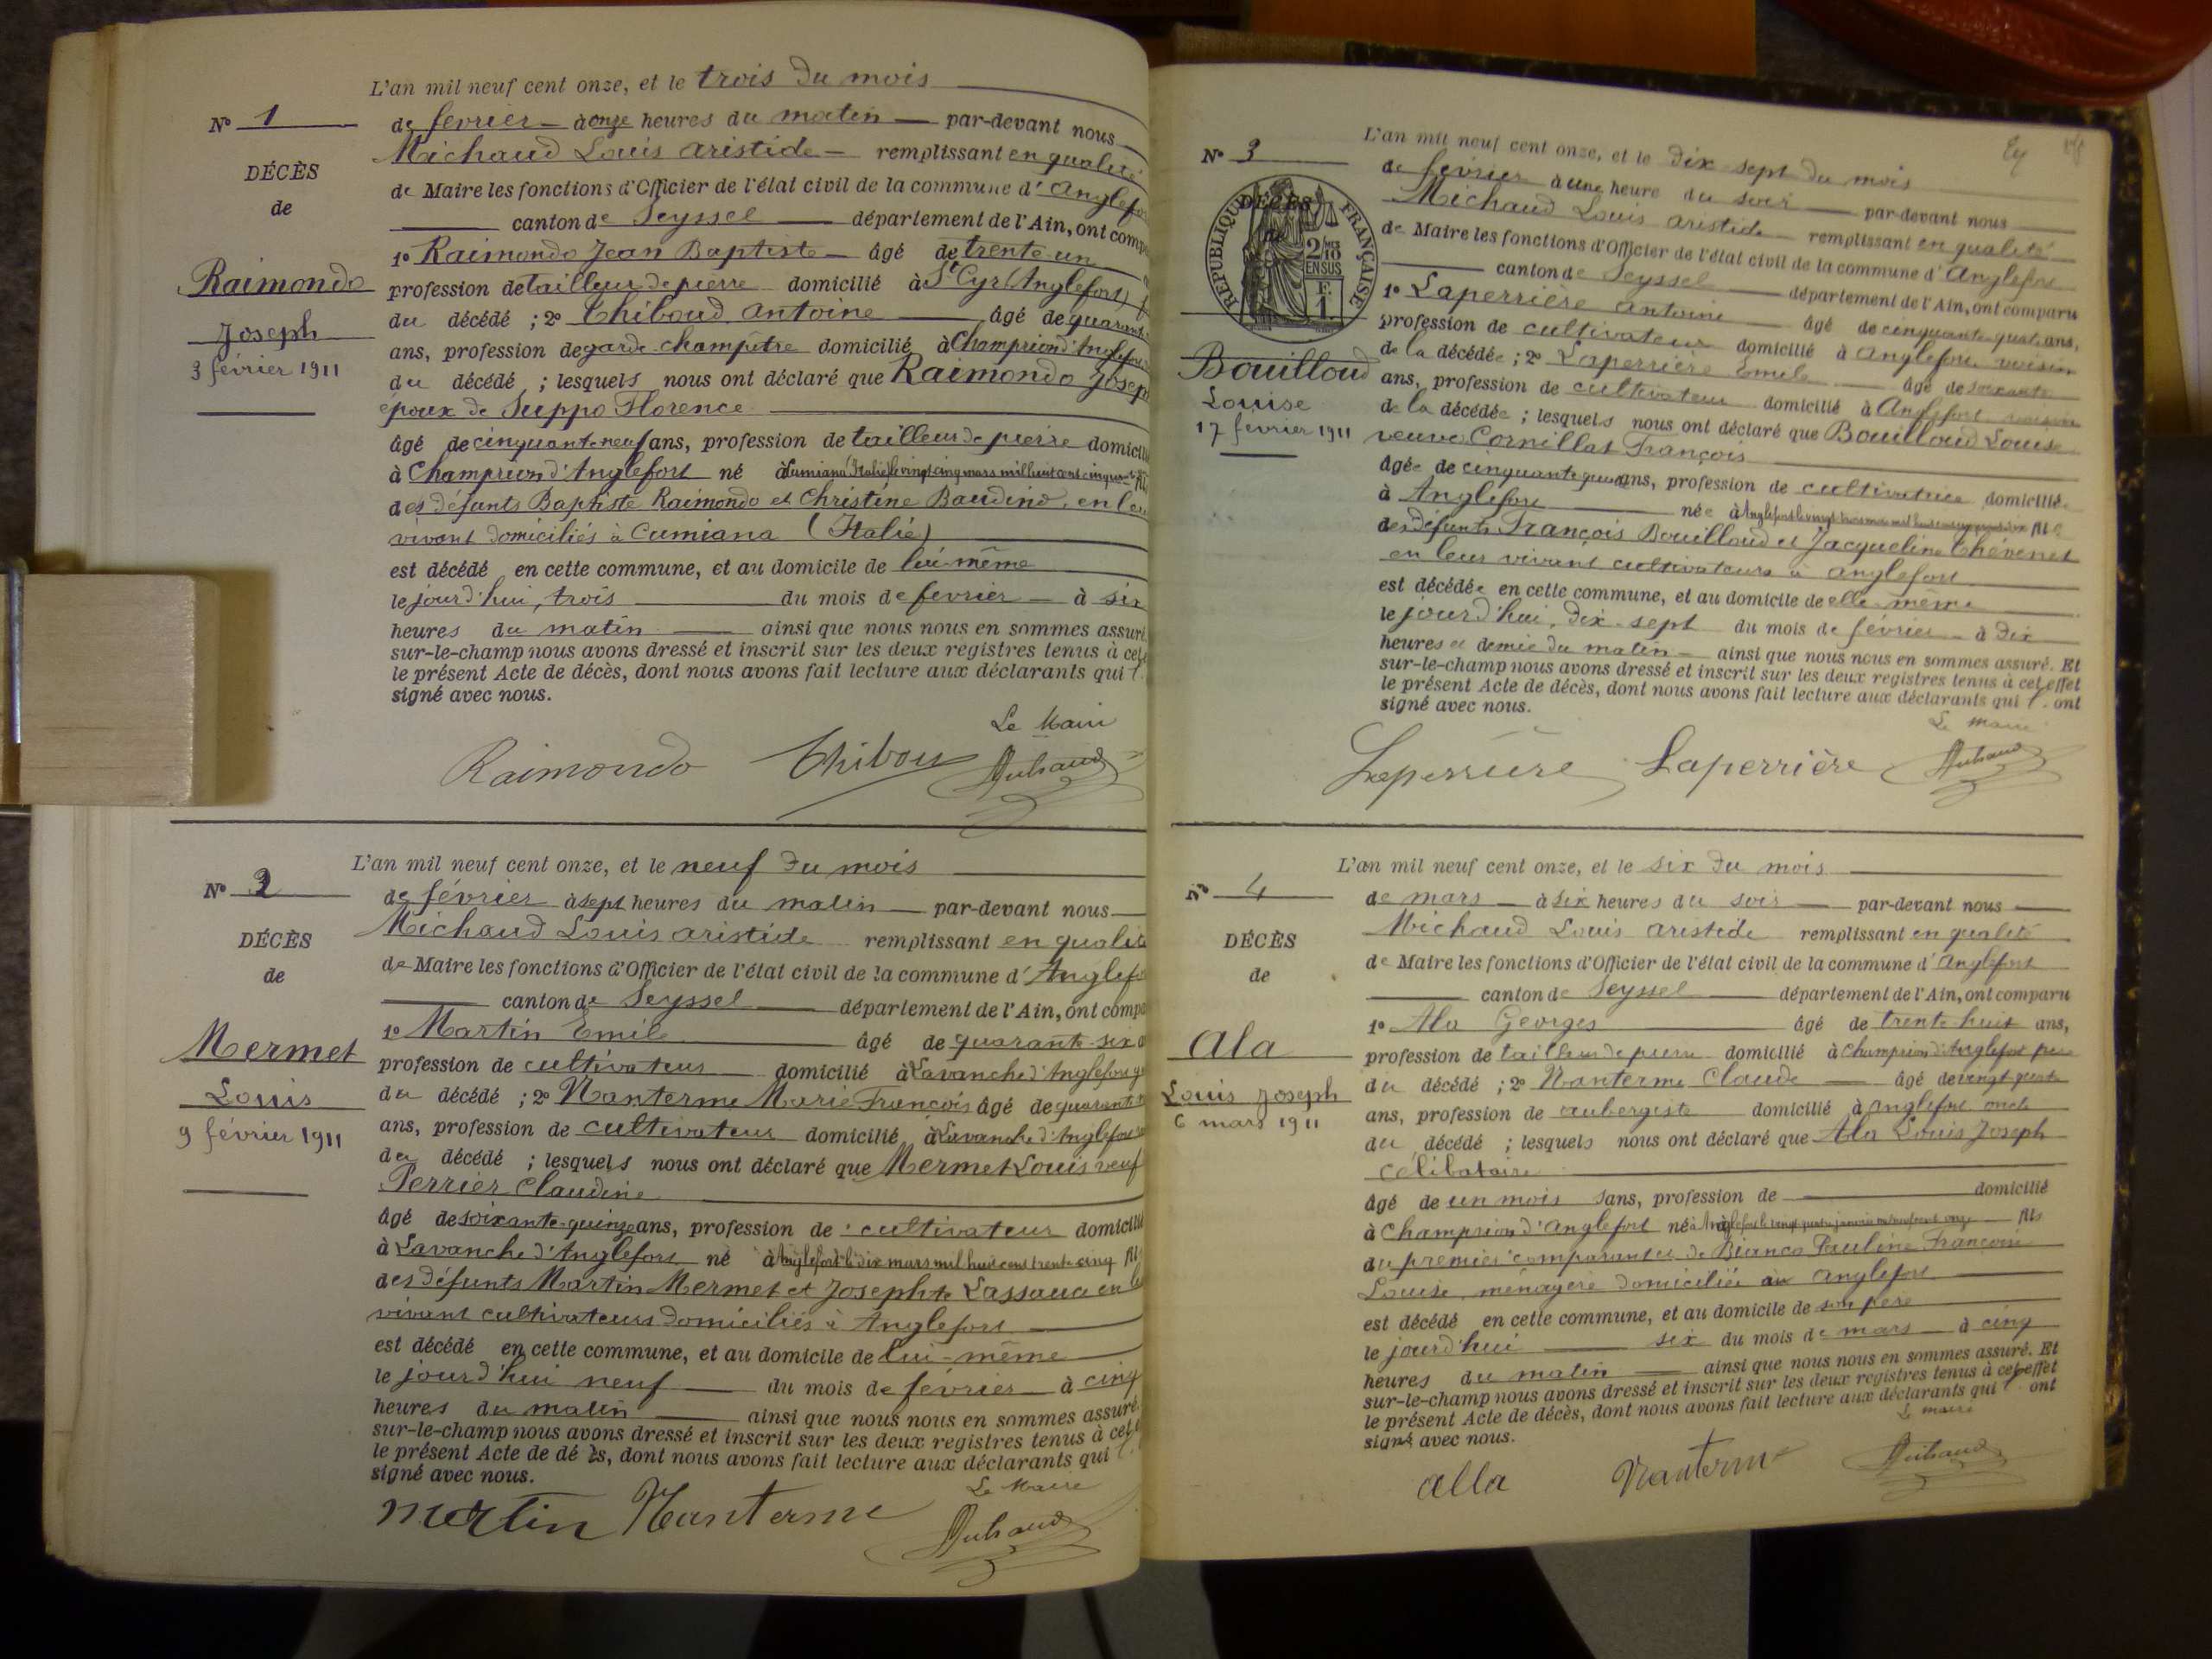 L'an mil neuf cent onze, et le trois du mois
N° 1
de février à onze heures du matin par-devant nous
Michaud Louis aristide remplissant en qualité
DÉCÈS
de Maire les fonctions d'Officier de l'état civil de la commune d'Anglefo
de
canton de Seyssel département de l'Ain, ont compa
1° Raimondo Jean Baptiste âgé de trente un
Raimondo
profession de tailleur de pierre domicilié à St Cyr (Anglefort)
Joseph
du décédé ; 2° Thiboud antoine âgé de quarante
3 février 1911
ans, profession de garde champêtre domicilié à Champriond d'Anglefort
du décédé ; lesquels nous ont déclaré que Raimondo Joseph
époux de Suppo Florence
âgé de cinquante neuf ans, profession de tailleur de pierre domicilié
à Champriond d'Anglefort né à Cumiana (Italie) le vingt cinq mars mil huit cent cinquante
des défunts Baptiste Raimondo et Christine Baudino, en leu
vivant domiciliés à Cumiana (Italie)
est décédé en cette commune, et au domicile de lui-même
le jourd'hui, trois du mois de février à six
heures du matin ainsi que nous nous en sommes assuré
sur-le-champ nous avons dressé et inscrit sur les deux registres tenus à cet
le présent Acte de décès, dont nous avons fait lecture aux déclarants qui
signé avec nous.
Le Maire
Raimondo Thibou Michaud
L'an mil neuf cent onze, et le neuf du mois
N° 2
de février à sept heures du matin par-devant nous
Michaud Louis aristide remplissant en qualité
DÉCÈS
de Maire les fonctions d'Officier de l'état civil de la commune d'Anglefo
de
canton de Seyssel département de l'Ain, ont compa
1° Martin Emile âgé de quarante-six a
Mermet
profession de cultivateur domicilié à Lavanche d'Anglefort
Louis
du décédé ; 2° Nanterme Marie François âgé de quarante
9 février 1911
ans, profession de cultivateur domicilié à Lavanche d'Anglefort
du décédé ; lesquels nous ont déclaré que Mermet Louis veuf
Perrier Claudine
âgé de soixante-quinze ans, profession de cultivateur domicilié
à Lavanche d'Anglefort né à Anglefort le dix mars mil huit cent trente cinq fils
des défunts Martin Mermet et Josephte Lassauce en le
vivant cultivateurs domiciliés à Anglefort
est décédé en cette commune, et au domicile de lui-même
le jourd'hui neuf du mois de février à cinq
heures du matin ainsi que nous nous en sommes assuré
sur-le-champ nous avons dressé et inscrit sur les deux registres tenus à cet
le présent Acte de dé ès, dont nous avons fait lecture aux déclarants qui
signé avec nous.
Le Maire
Martin Nanterme Michaud
L'an mil neuf cent onze, et le dix sept du mois
N° 3
de février à une heure du soir par-devant nous
Michaud Louis aristide remplissant en qualité
DÉCÈS
de
RÉPUBLIQUE FRANÇAISE
2/10 EN SUS
F. 1
de Maire les fonctions d'Officier de l'état civil de la commune d'Anglefort
canton de Seyssel département de l'Ain, ont comparu
1° Laperrière antoine âgé de cinquante quatre ans,
profession de cultivateur domicilié à Anglefort voisin
Bouilloud
de la décédée ; 2° Laperrière Emile âgé de soixante
Louise
ans, profession de cultivateur domicilié à Anglefort voisin
17 février 1911
de la décédée ; lesquels nous ont déclaré que Bouilloud Louise
veuve Cornillat François
âgée de cinquante ans, profession de cultivatrice domiciliée
à Anglefort née à Anglefort fille
des défunts François Bouilloud et Jacqueline Thévenet
en leur vivant cultivateurs à Anglefort
est décédée en cette commune, et au domicile de elle même
le jourd'hui, dix-sept du mois de février à dix
heures et demie du matin ainsi que nous nous en sommes assuré. Et
sur-le-champ nous avons dressé et inscrit sur les deux registres tenus à cet effet
le présent Acte de décès, dont nous avons fait lecture aux déclarants qui l'ont
signé avec nous.
Le maire
Laperrière Laperrière Michaud
L'an mil neuf cent onze, et le six du mois
N° 4
de mars à six heures du soir par-devant nous
Michaud Louis aristide remplissant en qualité
DÉCÈS
de Maire les fonctions d'Officier de l'état civil de la commune d'Anglefort
de
canton de Seyssel département de l'Ain, ont comparu
1° Ala Georges âgé de trente huit ans,
Ala
profession de tailleur de pierre domicilié à Champriond d'Anglefort père
Louis Joseph
du décédé ; 2° Nanterme Claude âgé de vingt quatre
6 mars 1911
ans, profession de aubergiste domicilié à Anglefort oncle
du décédé ; lesquels nous ont déclaré que Ala Louis Joseph
célibataire
âgé de un mois sans, profession de domicilié
à Champriond d'Anglefort né à Anglefort le vingt quatre janvier mil neuf cent onze fils
du premier comparant et de Bianco Pauline Françoise
Louise, ménagère domiciliés à Anglefort
est décédé en cette commune, et au domicile de son père
le jourd'hui six du mois de mars à cinq
heures du matin ainsi que nous nous en sommes assuré. Et
sur-le-champ nous avons dressé et inscrit sur les deux registres tenus à cet effet
le présent Acte de décès, dont nous avons fait lecture aux déclarants qui l'ont
signé avec nous.
Le maire
alla Nanterme Michaud